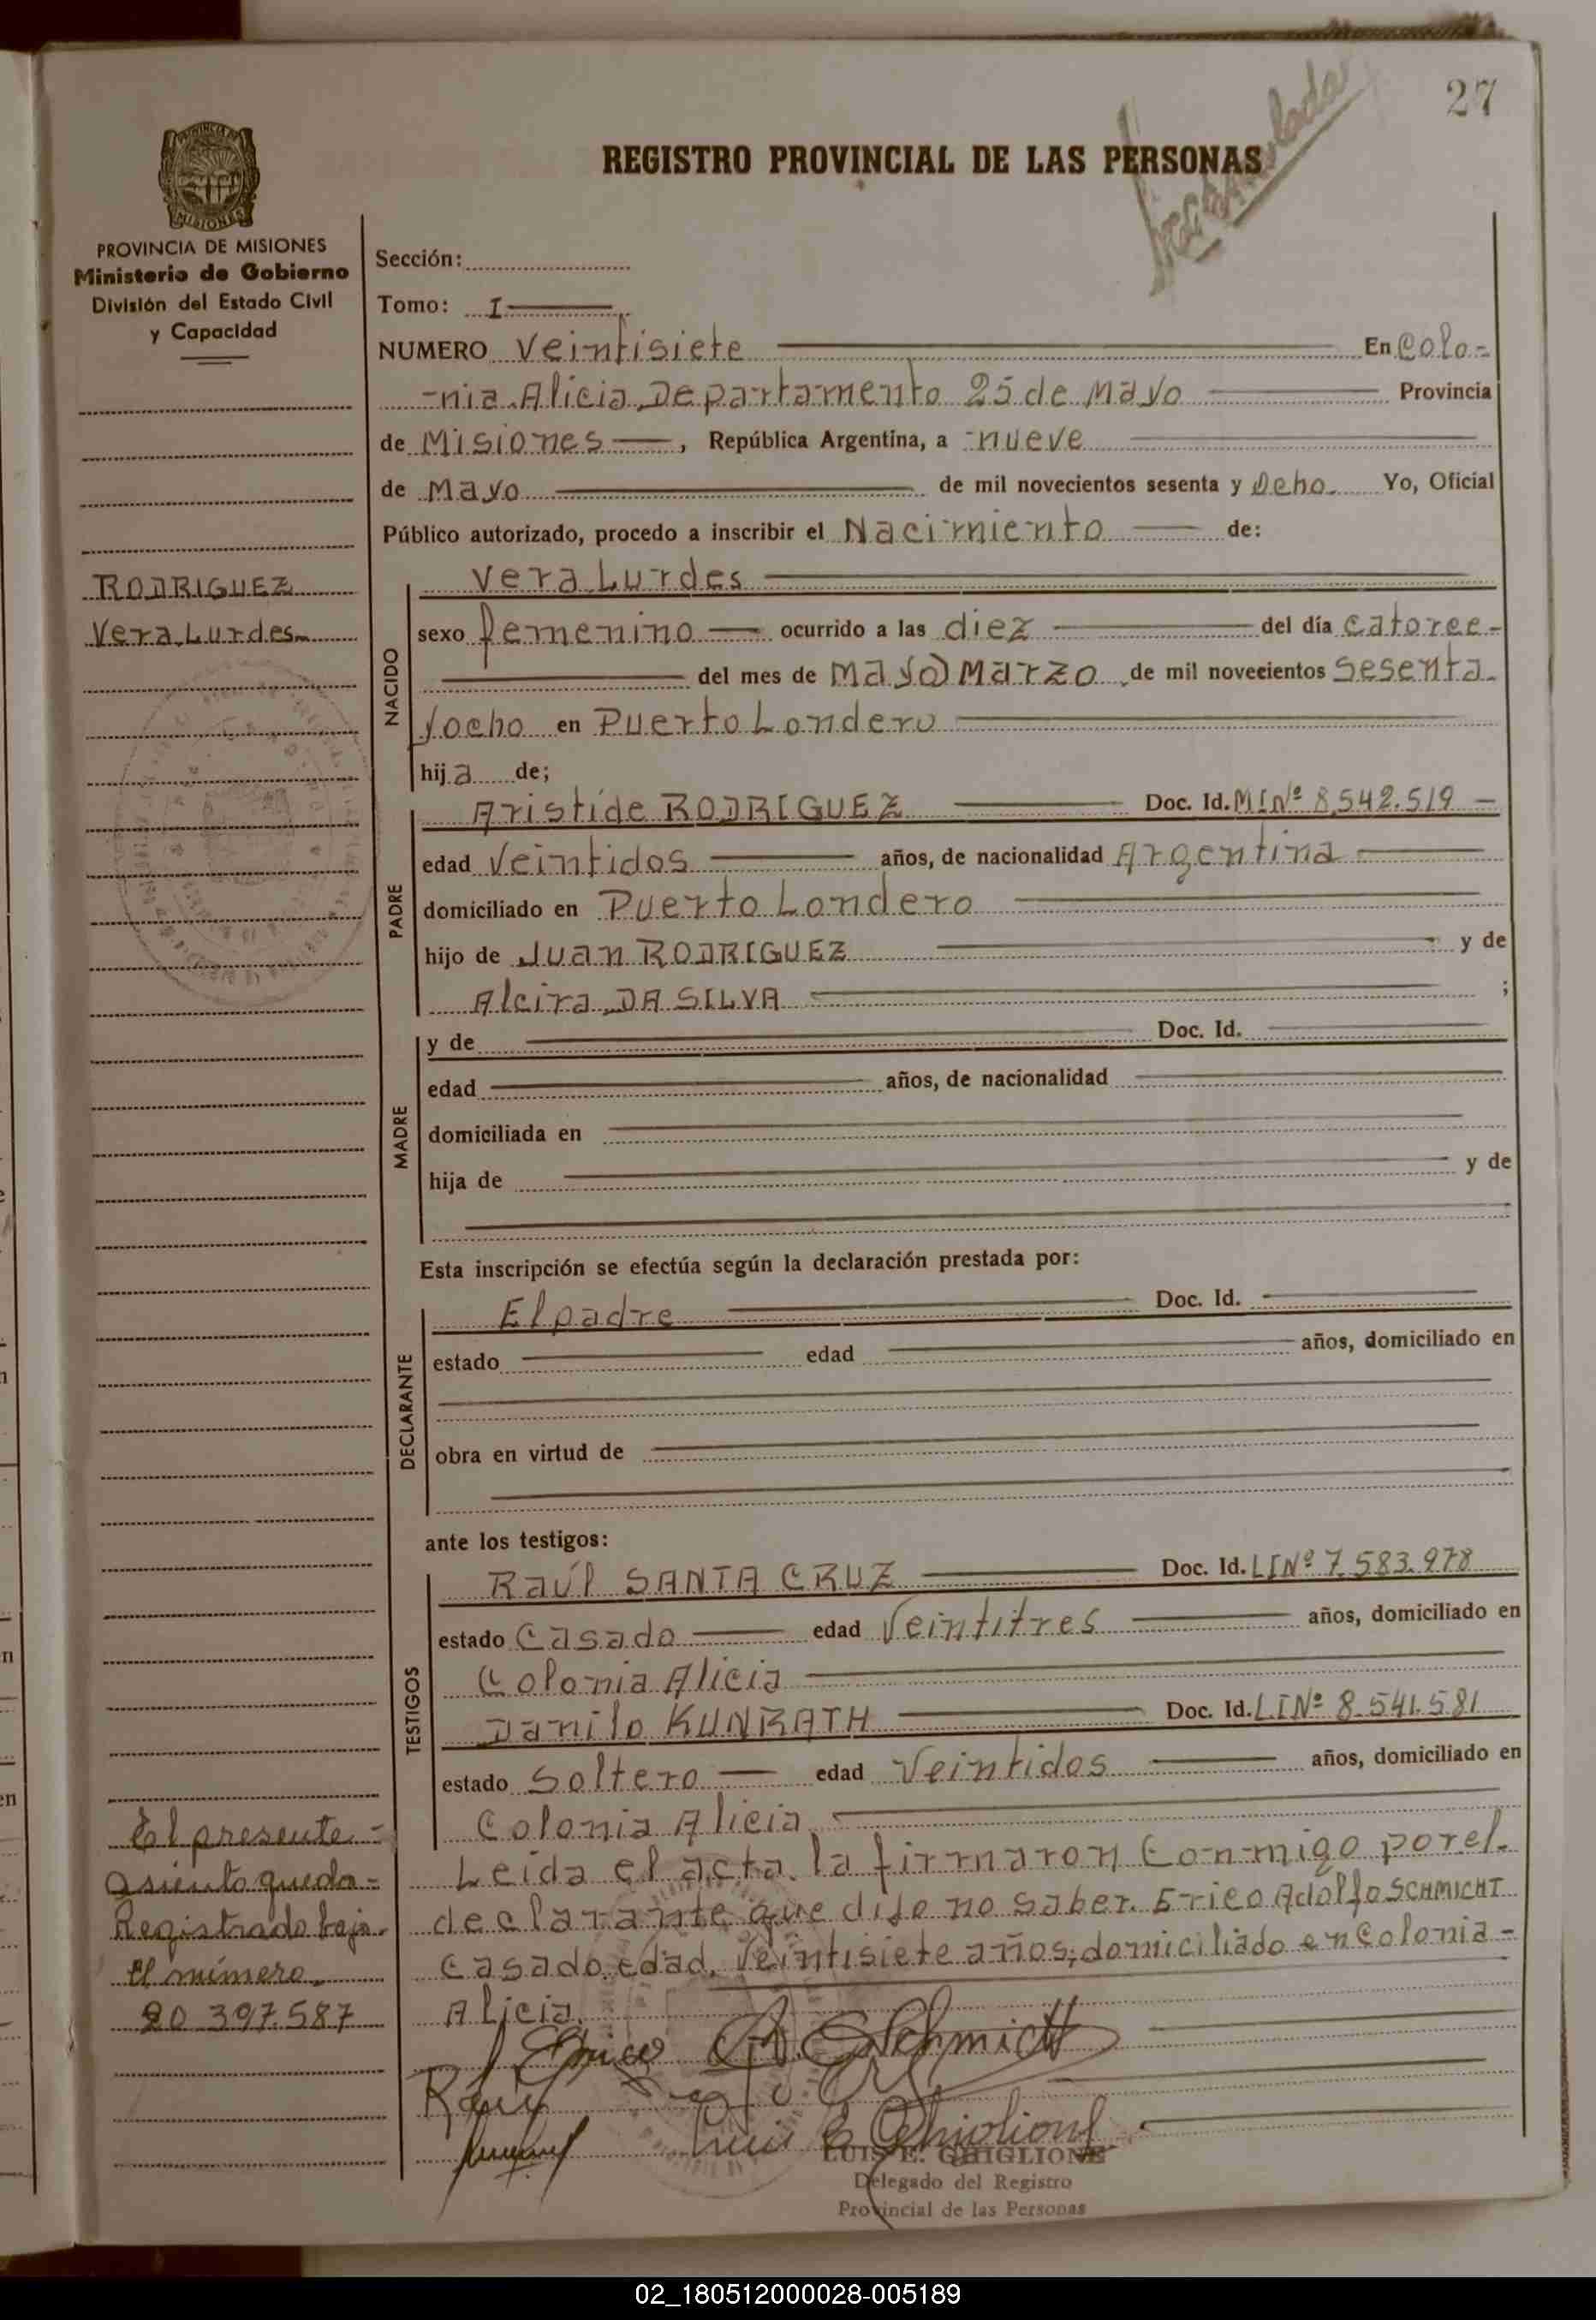 27
REGISTRO PROVINCIAL DE LAS PERSONAS
PROVINCIA DE
MISIONES
PROVINCIA DE MISIONES
Ministerio de Gobierno
División del Estado Civil
y Capacidad
Sección:
Tomo: I
NUMERO Veintisiete En Colo-
-nia Alicia Departamento 25 de Mayo Provincia
de Misiones, República Argentina, a nueve
de Mayo de mil novecientos sesenta y Ocho. Yo, Oficial
Público autorizado, procedo a inscribir el Nacimiento de:
RODRIGUEZ
Vera Lurdes
NACIDO
Vera Lurdes
sexo femenino ocurrido a las diez del día catorce-
del mes de Mayo) Marzo de mil novecientos Sesenta
y ocho en Puerto Londero
hija de;
PADRE
Aristide RODRIGUEZ Doc. Id. MINº 8.542.519
edad Veintidos años, de nacionalidad Argentina
domiciliado en Puerto Londero
hijo de Juan RODRIGUEZ y de
Alcira DA SILVA ;
MADRE
y de Doc. Id.
edad años, de nacionalidad
domiciliada en
hija de y de
Esta inscripción se efectúa según la declaración prestada por:
DECLARANTE
El padre Doc. Id.
estado edad años, domiciliado en
obra en virtud de
ante los testigos:
TESTIGOS
Raúl SANTA CRUZ Doc. Id. LINº 7.583.978
estado Casado edad Veintitres años, domiciliado en
Colonia Alicia
Danilo KUNRATH Doc. Id. LINº 8.541.581
estado Soltero edad Veintidos años, domiciliado en
Colonia Alicia
Leida el acta la firmaron Conmigo por el
declarante que dijo no saber. Erico Adolfo SCHMICHT
casado edad, Veintisiete años, domiciliado en Colonia-
Alicia.
El presente-
asiento queda-
Registrado bajo
el número
20 397.587
Erico A. Schmidt
Raúl
Luis E. Ghiglione
LUIS E. GHIGLIONE
Delegado del Registro
Provincial de las Personas
02_180512000028-005189